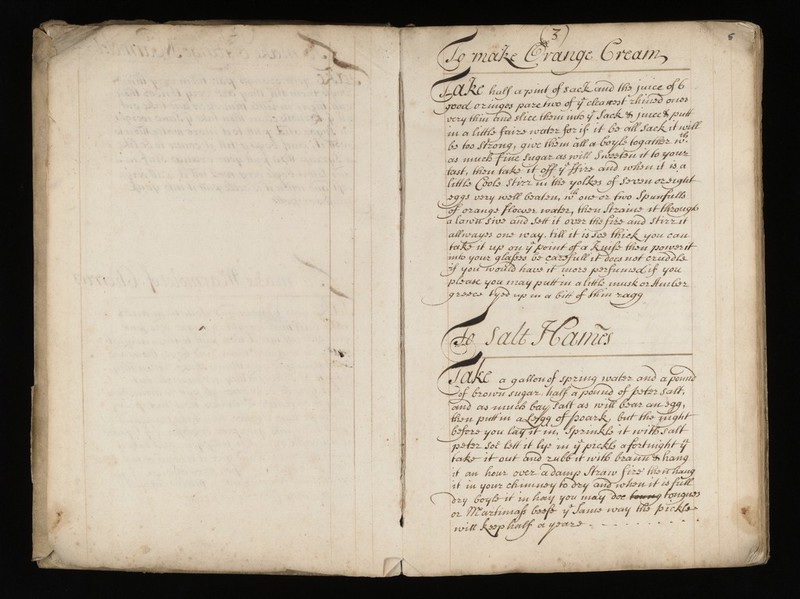 3
5
To make Orange Cream
Take half a pint of sack and the juice of 6
good oringes pare two of yͤ clearest rhined ones
very thin and slice them into yͤ Sack & juce & putt
in a little faire water for if it be all Sack it will
be too strong, give them all a boyle togather wᵗʰ
as much fine sugar as will Sweeten it to your
tast, then take it off yͤ ffire and when it is a
little Coole stirr in the yolkes of seven or eight
eggs very well beaten, wᵗʰ one or two Spunfulls
of orange flower water, then straine it through
a lawn sive and sett it over the fire and stirr it
allwayes one way. till it is soe thick you can
take it up on yͤ point of a knife then power it
into your glasses be carefull it does not cruddle
if you would have it more perfumed if you
please you may putt in a little musk or Amber
greece tyed up in a bitt of thin ragg
To salt Hames
Take a gallon of spring water and a pound
of brown sugar half a pound of peter salt,
and as much bay salt as will bear an egg,
then putt in a Legg of poark, but the night
before you lay it in, Sprinkle it with salt
peter soe lett it lip in yͤ pickle a fortnight yⁿ
take it out and rubb it with brann & hang
it an hour over a damp straw fire then hang
it in your chimney to dry and when it is full
dry boyle it in hay, you may doe tongues
or Martimass beefe yͤ same way the pickle
will keep half a yeare